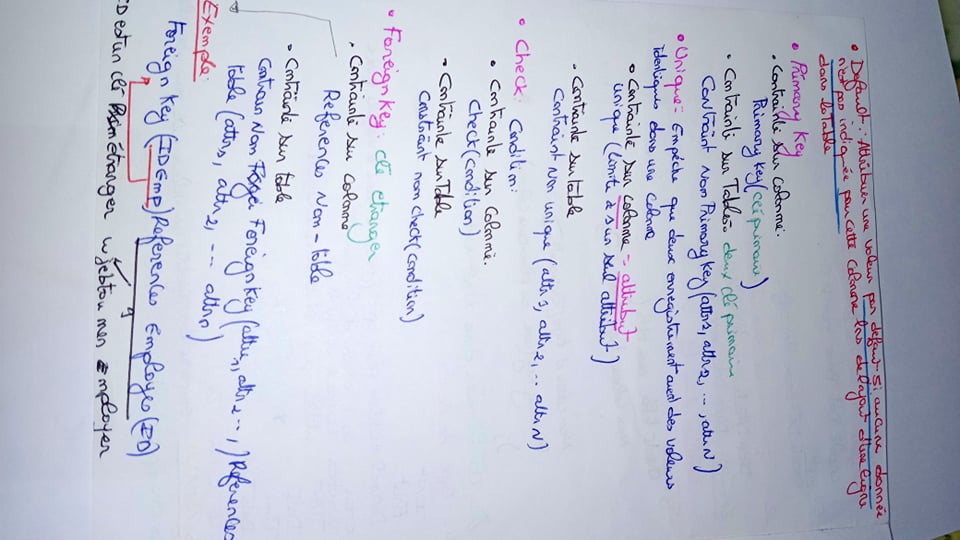 • Default: Attribuer une valeur par défaut si aucune donnée
n'est pas indiquée pour cette colonne lors de l'ajout d'une ligne
dans la Table
• Primary Key
• Contrainte sur colonne:
Primary Key (clé primaire)
• Contrainte sur Table: deux clé primaire
Contraint Nom Primary Key (attr1, attr2, .., attrN)
• Unique = Empêche que deux enregistrement aient des valeurs
identiques dans une colonne
• Contrainte sur colonne = attribut
unique (limite à un seul attribut)
• Contrainte sur table
Contraint Nom unique (attr1, attr2, .. attrN)
• Check: Condition:
• Contrainte sur Colonne.
Check (condition)
• Contrainte sur Table
Constraint nom check (condition)
• Foreign Key: clé etranger
• Contrainte sur colonne
References Nom-table
• Contrainte sur table
Contrain Nom Foreign Key (attr1, attr2 .., ) References
table (attr1, attr2, ... attrn)
Exemple:
Foreign Key (IDEmp) References Employes (ID)
ID est un clé étranger w jebtou men Employer